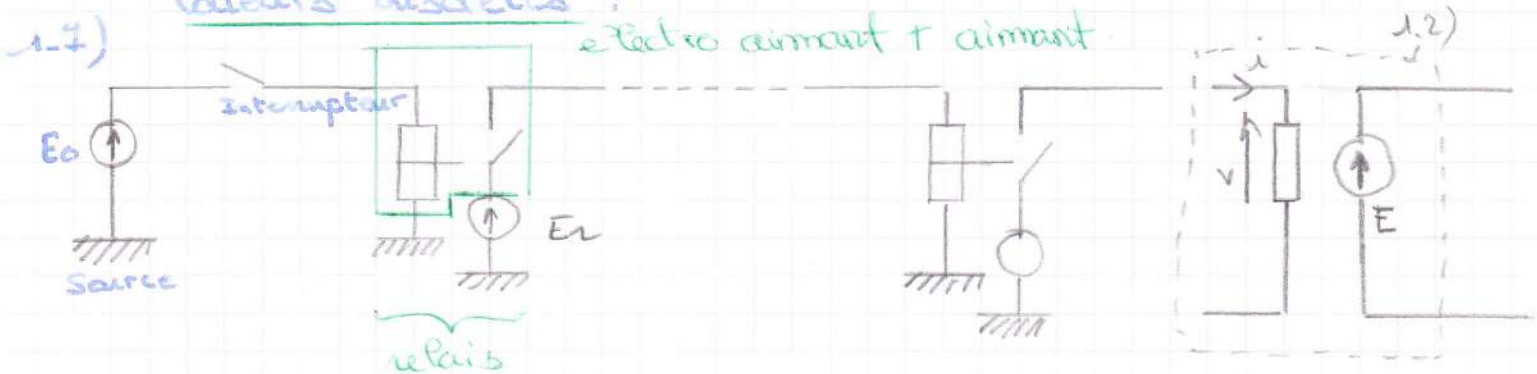 1-7)
electro aimant + aimant
1.2)
i
Interrupteur
E0
V
E
Source
relais